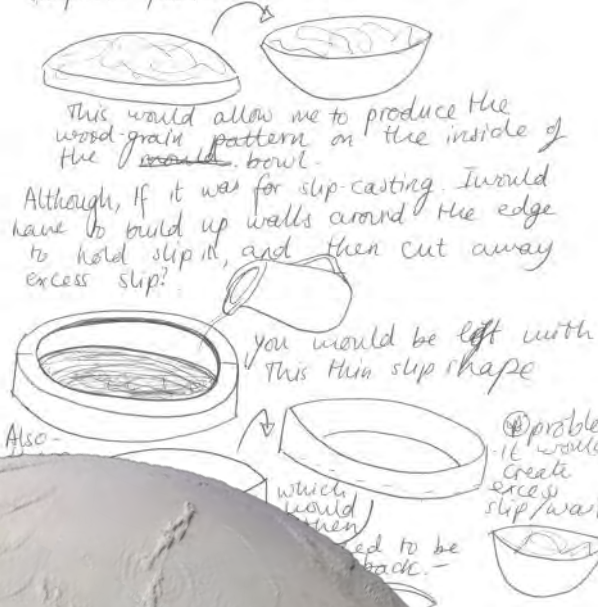 This would allow me to produce the
wood-grain pattern on the inside of
the mould bowl.
Although, If it was for slip-casting. I would
have to build up walls around the edge
to hold slip in, and then cut away
excess slip?
you would be left with
This thin slip shape
Also-
problem
it would
create
excess
which
would
then
to be
back.-